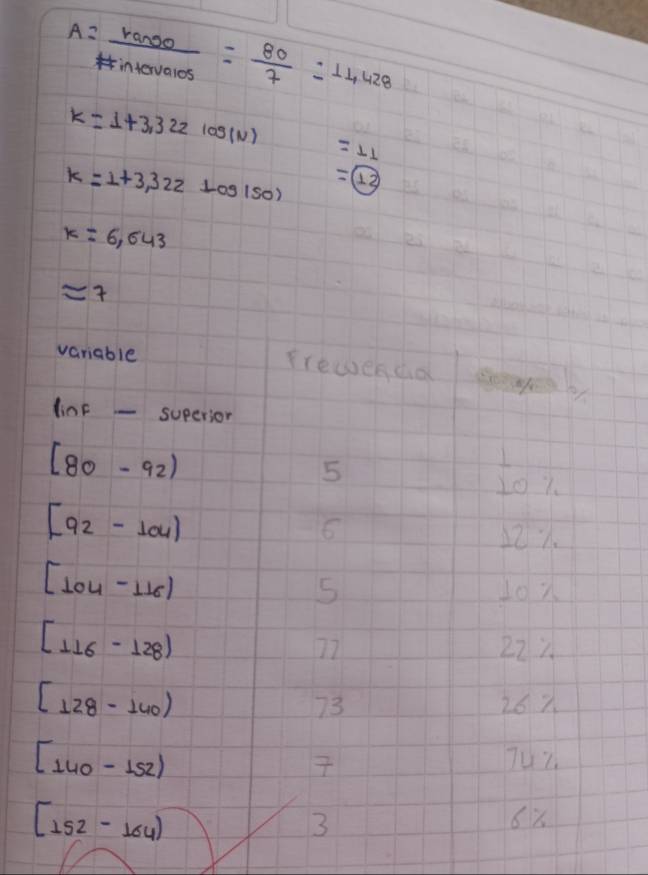 A = rango / #intervalos = 80 / 7 = 11,428
k = 1+3,322 log(N) = 11
k = 1+3,322 Log(50) = 12
k = 6,643
≈ 7
variable Frecuencia %
linf — superior
[80 - 92) 5 10 %
[92 - 104) 6 12 %
[104 - 116) 5 10 %
[116 - 128) 11 22 %
[128 - 140) 13 26 %
[140 - 152) 7 14 %
[152 - 164) 3 6 %